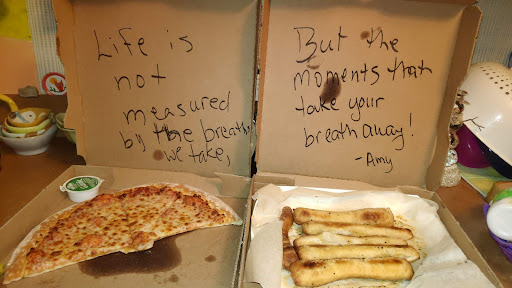 Life is
not
measured
by the breaths
we take,
But the
moments that
take your
breath away!
-Amy